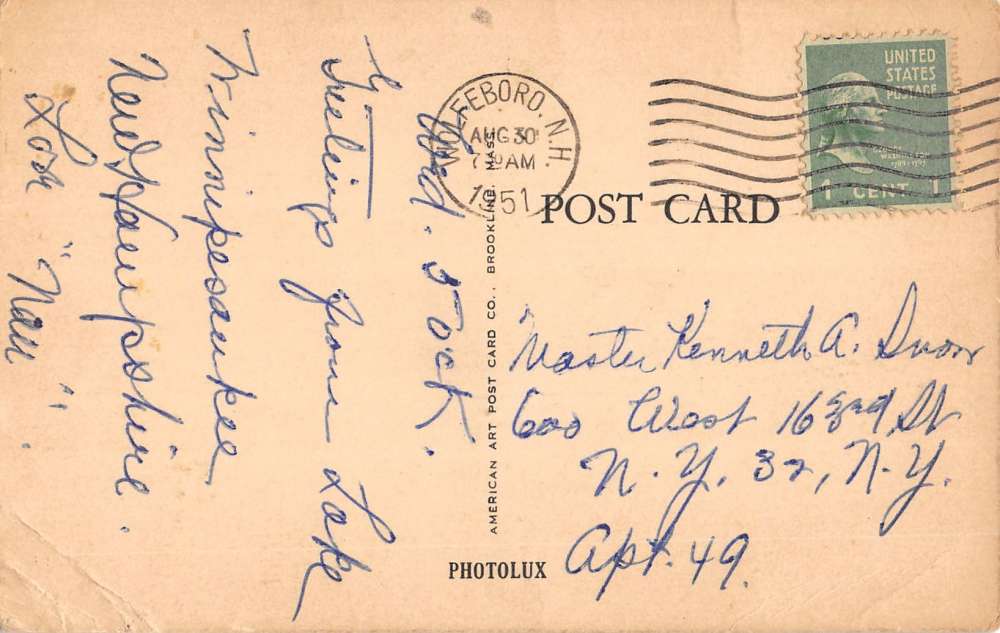 Wed. 5 ock.
Greetings from Lake
Winnipesaukee
New Hampshire.
Love "Nan".
WOLFEBORO, N.H.
AUG 30
AM
1951
UNITED
STATES
POSTAGE
GEORGE
WASHINGTON
1789-1797
1 CENT 1
POST CARD
AMERICAN ART POST CARD CO., BROOKLINE, MASS.
Master Kenneth A.
600 West 163rd St
N.Y. 32, N.Y.
Apt. 49.
PHOTOLUX